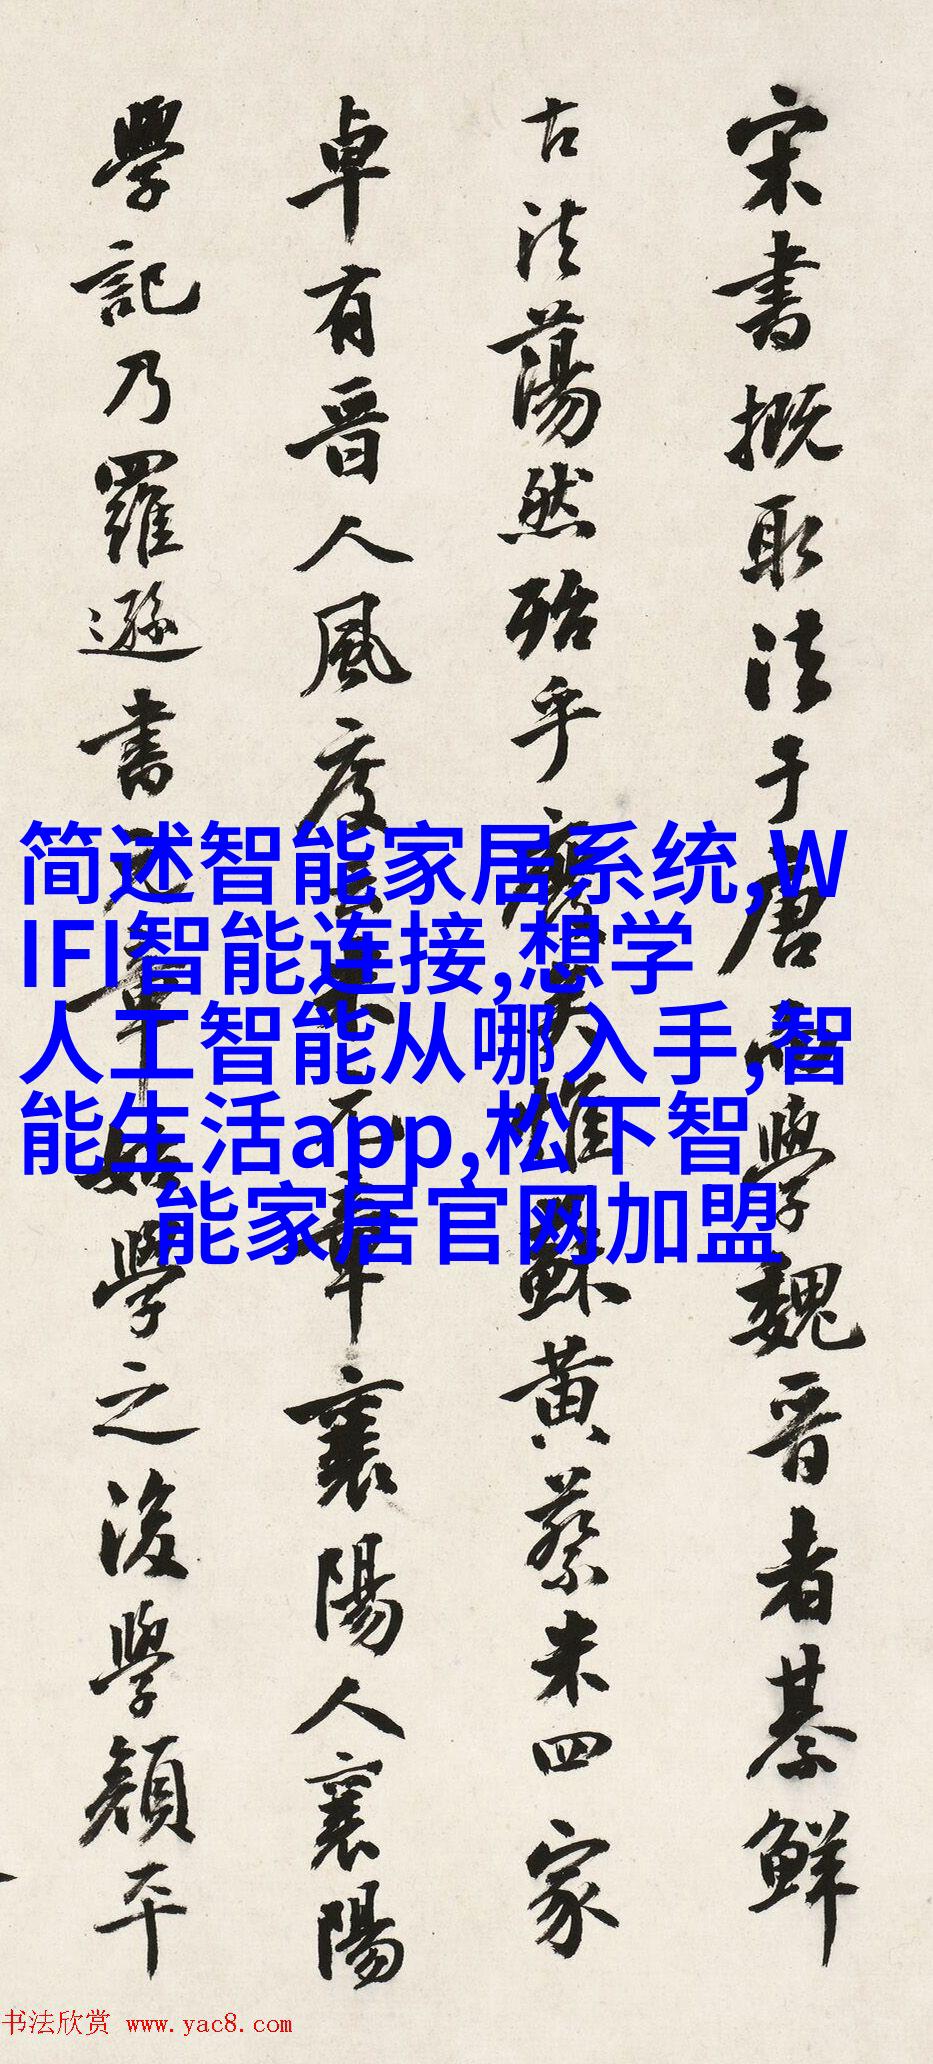 宋書概取法于唐而學魏晋者綦鮮
古法蕩然殆乎廢矣惟蘇黄蔡米四家
卓有晋人風度
章襄陽人襄陽
學記乃羅遜書元章始學之後學顏平
简述智能家居系统,W
IFI智能连接,想学
人工智能从哪入手,智
能生活app,松下智
能家居官网加盟
书法欣赏 www.yac8.com